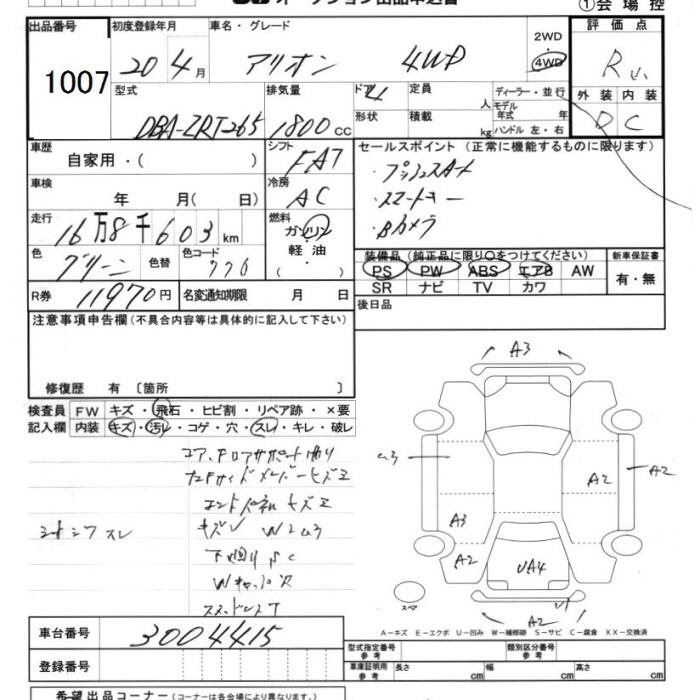 ①会場控
出品番号 初度登録年月 車名・グレード 2WD 4WD 評価点
1007 20年4月 アリオン 4WD R
型式 排気量 ドア 4 定員 人 ディーラー・並行 外装 内装
DBA-ZRT265 1800cc 形状 積載 kg モデル年式 年 ハンドル 左・右 D C
車歴 自家用・( ) シフト FAT セールスポイント (正常に機能するものに限ります)
・プッシュスタート
車検 年 月( 日) 冷房 AC ・スマートキー
・Bカメラ
走行 16万8千603km 燃料 ガソリン・軽油・( )
色 グリーン 色替 色コード 776
装備品 (純正品に限り○をつけてください) 新車保証書
PS PW ABS エアB AW 有・無
SR ナビ TV カワ
R券 11970円 名変通知期限 月 日 後日品
注意事項申告欄 (不具合内容等は具体的に記入して下さい)
修復歴 有〔箇所 〕
検査員記入欄 FW キズ・飛石・ヒビ割・リペア跡・×要
内装 キズ・汚レ・コゲ・穴・スレ・キレ・破レ
コア、Fロアサポート曲り
エンドパネルヒズミ
シートシワスレ キズ W
下回りSC
A3
A2 A2
A3
A2 UA4
スペア U1
A2
A−キズ E−エクボ U−凹み W−補修跡 S−サビ C−腐食 XX−交換済
車台番号 3004415
登録番号
型式指定番号 参考 類別区分番号 参考
車庫証明用 参考 長さ cm 幅 cm 高さ cm
希望出品コーナー (コーナーは各会場により異なります。)